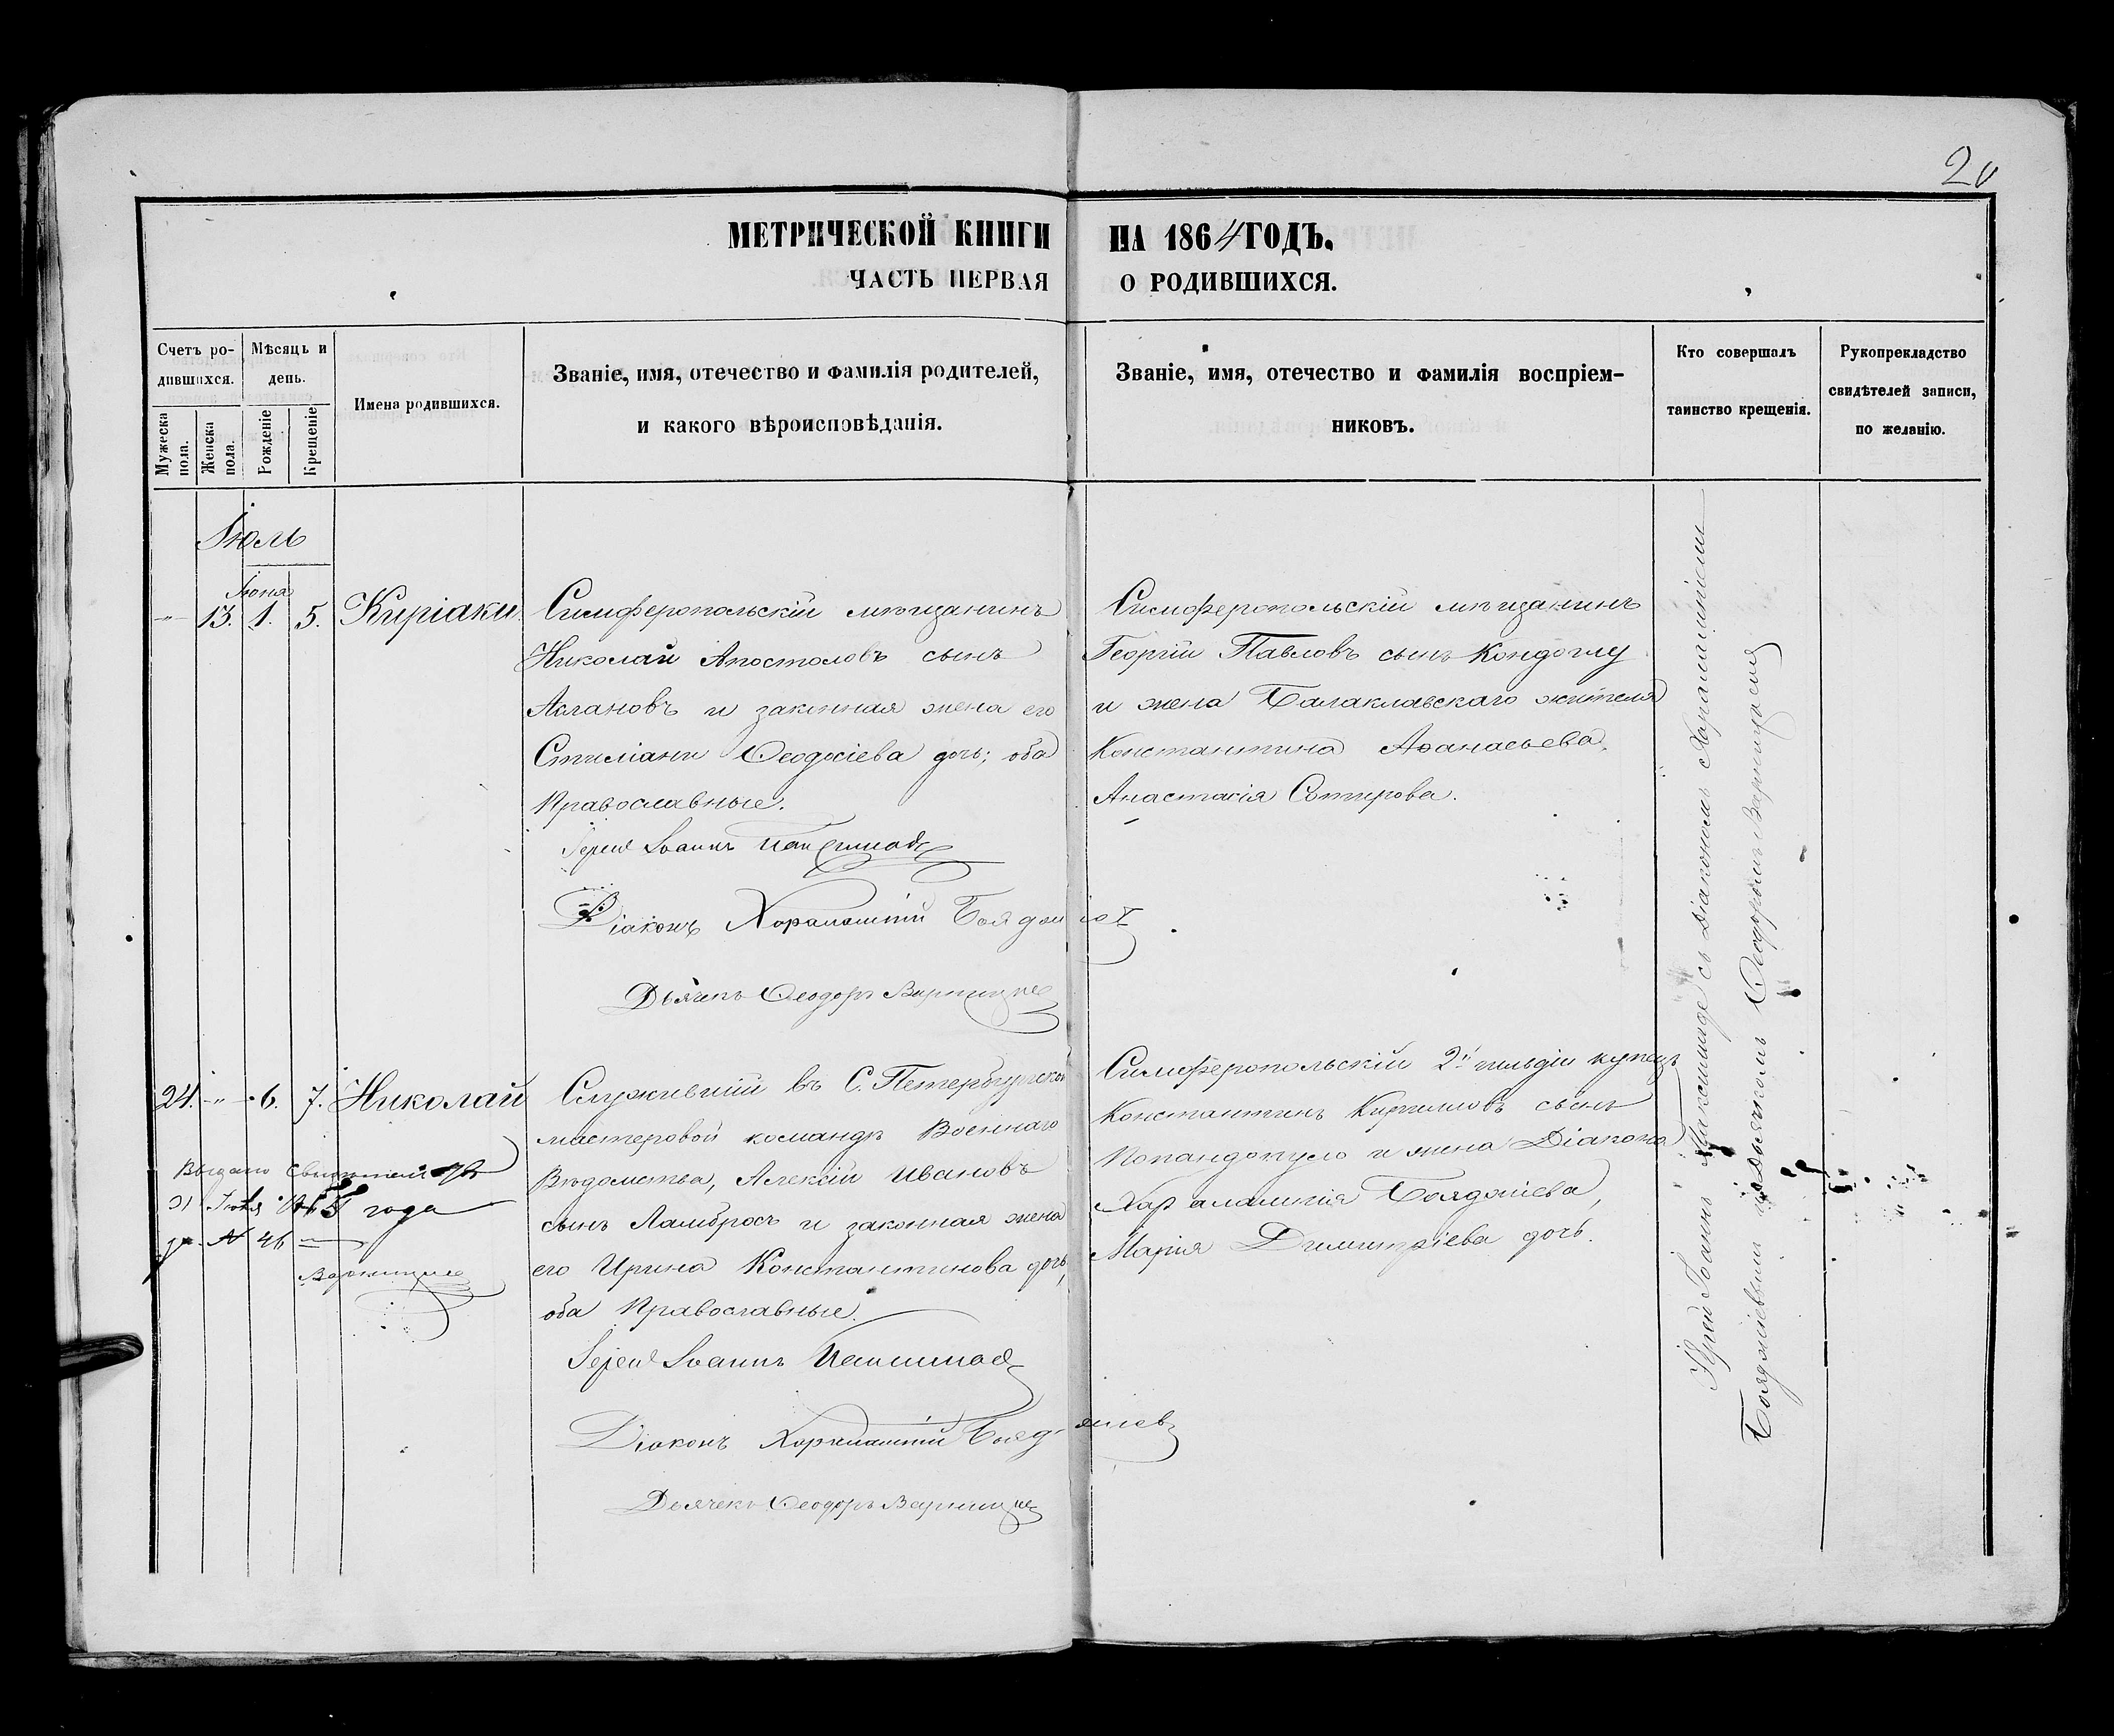 20
МЕТРИЧЕСКОЙ КНИГИ НА 1864 ГОДЪ.
ЧАСТЬ ПЕРВАЯ О РОДИВШИХСЯ.
Счетъ ро-
дившихся.
Мужеска
пола.
Женска
пола.
Мѣсяцъ и
день.
Рожденіе
Крещеніе
Имена родившихся.
Званіе, имя, отечество и фамилія родителей,
и какого вѣроисповѣданія.
Званіе, имя, отечество и фамилія воспріем-
никовъ.
Кто совершалъ
таинство крещенія.
Рукоприкладство
свидѣтелей записи,
по желанію.
Іюль
Іюня
13. 1. 5. Киріаки
Симферопольскій мѣщанинъ
Николай Апостоловъ сынъ
Аслановъ и законная жена его
Стиліани Ѳеодосіева дочь; оба
Православные.
Іерей Іоаннъ
Діаконъ Харалампій Бояджіев
Дьячекъ Ѳеодоръ
Симферопольскій мѣщанинъ
Георгій Павловъ сынъ Кондоглу
и жена Балаклавскаго жителя
Константина Аѳанасьева,
Анастасія Сотирова.
24. 6. 7. Николай
Служившій въ С. Петербургской
мастеровой командѣ Военнаго
Вѣдомства, Алексій Ивановъ
сынъ Ламбросъ и законная жена
его Ирина Константинова дочь,
оба Православные.
Іерей Іоаннъ
Діаконъ Харалампій Бояджіев
Дьячекъ Ѳеодоръ
Симферопольскій 2й гильдіи купецъ
Константинъ Кирилловъ сынъ
Попандопуло и жена Діакона
Харалампія Бояджіева,
Марія Димитріева дочь.
Выдано
года
№ 46
Іерей Іоаннъ съ Діакономъ Харалампіемъ
Бояджіевымъ и дьячкомъ Ѳеодоромъ